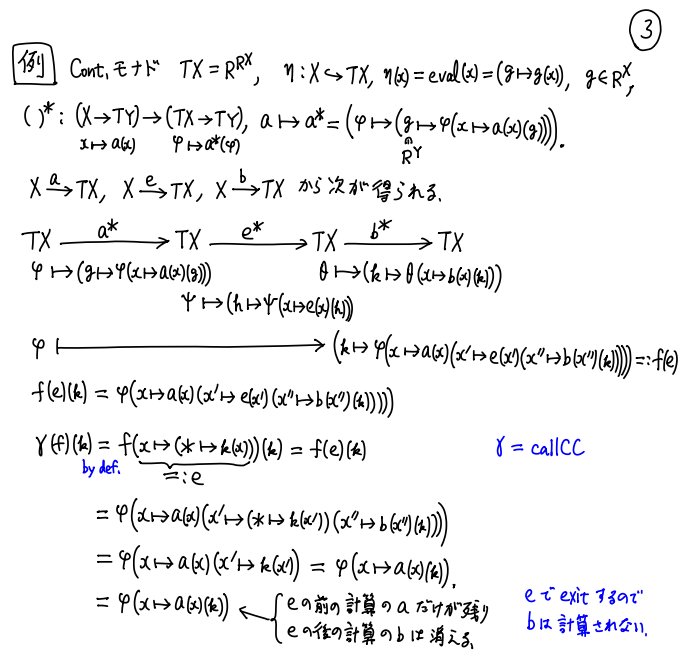 ③
例 Cont. モナド TX = R^{R^X}, η : X ↪ TX, η(x) = eval(x) = (g ↦ g(x)), g ∈ R^X,
( )* : (X → TY) → (TX → TY), a ↦ a* = (φ ↦ (g ↦ φ(x ↦ a(x)(g)))).
x ↦ a(x) φ ↦ a*(φ) ∩ R^Y
X -a→ TX, X -e→ TX, X -b→ TX から次が得られる.
TX -a*→ TX -e*→ TX -b*→ TX
φ ↦ (g ↦ φ(x ↦ a(x)(g))) θ ↦ (k ↦ θ(x ↦ b(x)(k)))
ψ ↦ (h ↦ ψ(x ↦ e(x)(h)))
φ ⟼ (k ↦ φ(x ↦ a(x)(x' ↦ e(x')(x'' ↦ b(x'')(k))))) =: f(e)
f(e)(k) = φ(x ↦ a(x)(x' ↦ e(x')(x'' ↦ b(x'')(k))))
γ(f)(k) = f(x ↦ (* ↦ k(x)))(k) = f(e)(k) γ = callCC
by def. =: e
= φ(x ↦ a(x)(x' ↦ (* ↦ k(x'))(x'' ↦ b(x'')(k))))
= φ(x ↦ a(x)(x' ↦ k(x')) = φ(x ↦ a(x)(k)).
= φ(x ↦ a(x)(k)) ← { eの前の計算のaだけが残り
eの後の計算のbは消える.
eでexitするので
bは計算されない.